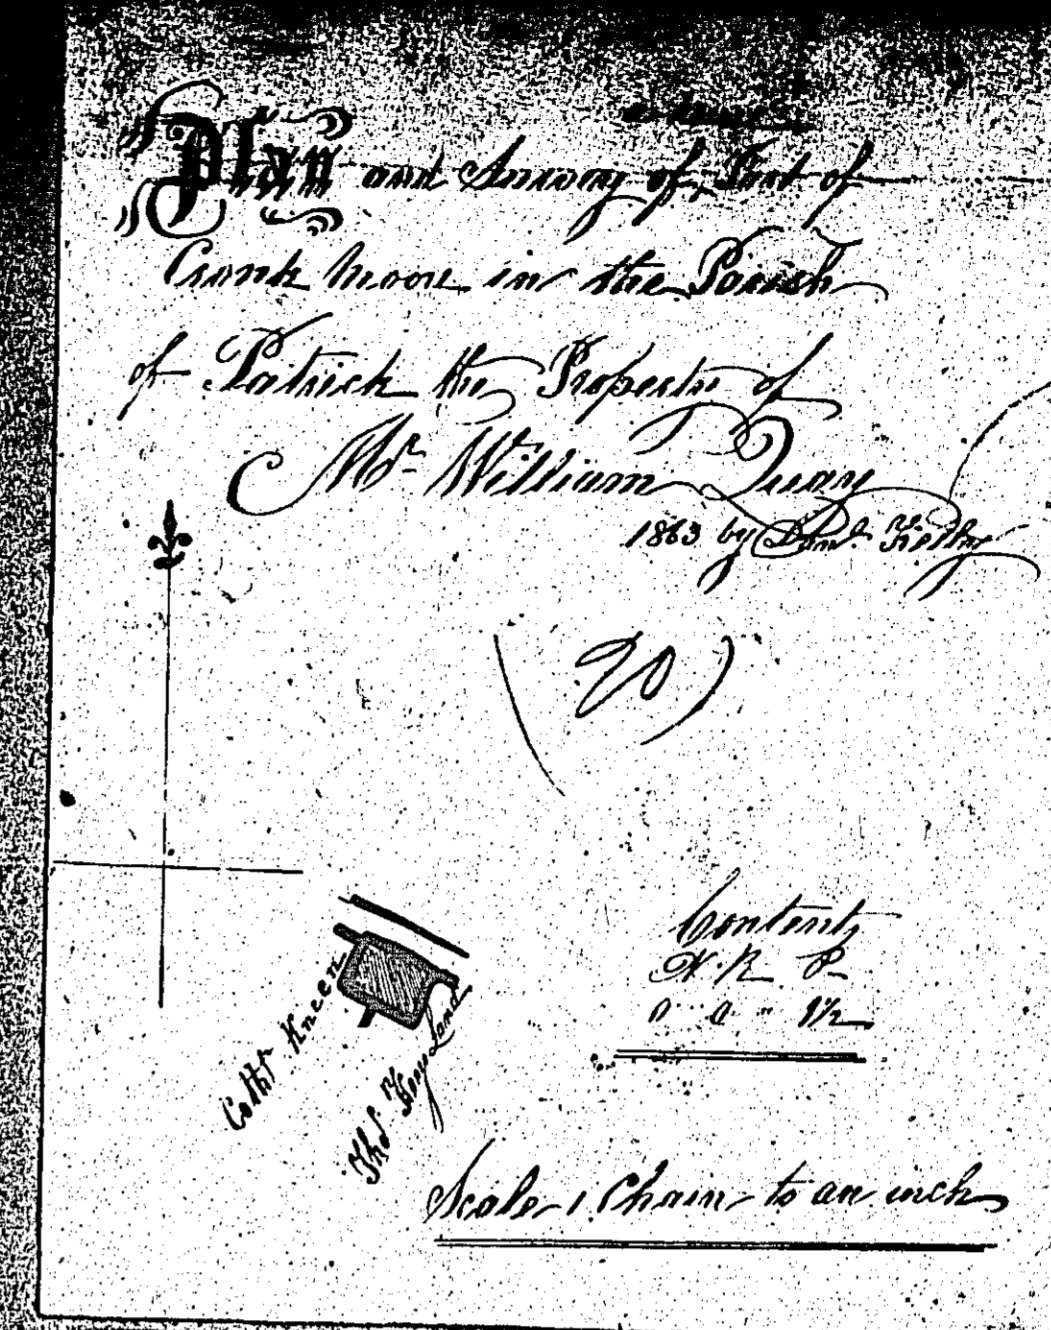 Plan and Survey of Part of
Cronk Moar in the Parish
of Patrick the Property of
Mr William Quay
1863 by Danl. Kelly
(20)
Content
A. R. P
0 0 " 9½
Cathr Kneen
Thos Keoy Land
Scale 1 Chain to an inch